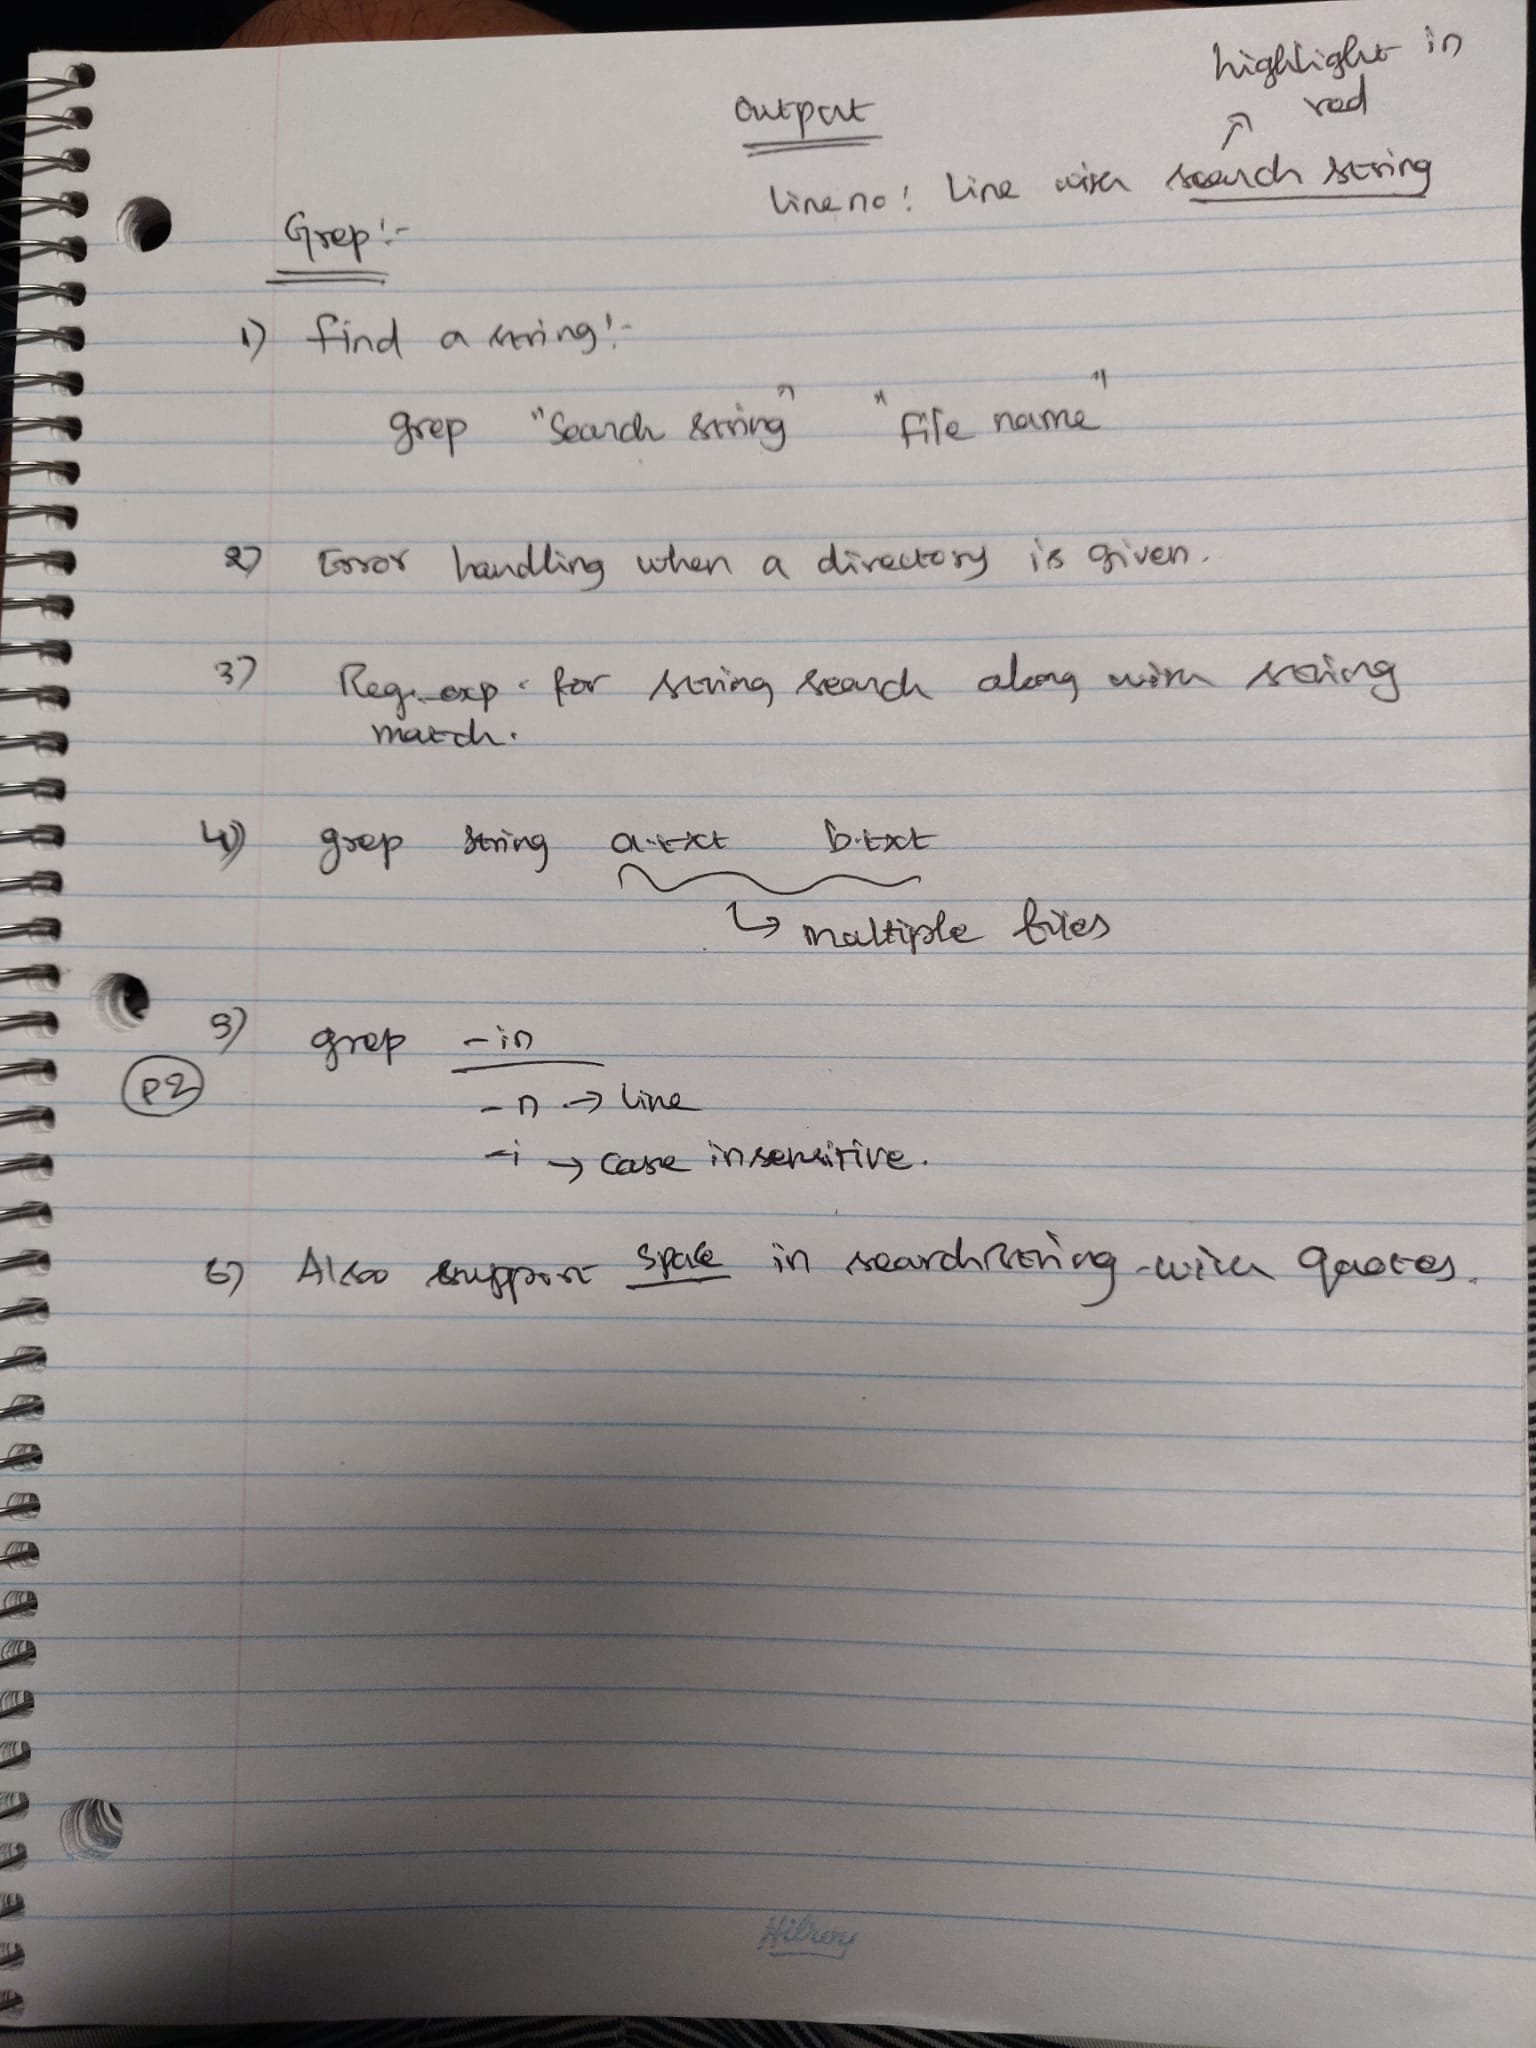 highlight in
red
Output
Line no: Line with search string
Grep:-
1) find a string:-
grep "Search string" "file name"
2) Error handling when a directory is given.
3) Reg. exp. for string search along with string
match.
4) grep string a.txt b.txt
↳ multiple files
5) grep -in
P2
-n → Line
-i → case insensitive.
6) Also support space in search string with quotes.
Hilroy